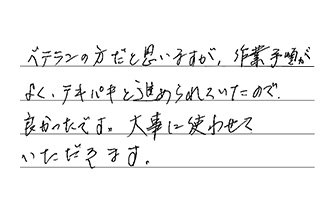 ベテランの方だと思いますが、作業手順が
よく、テキパキと進められていたので、
良かったです。大事に使わせて
いただきます。